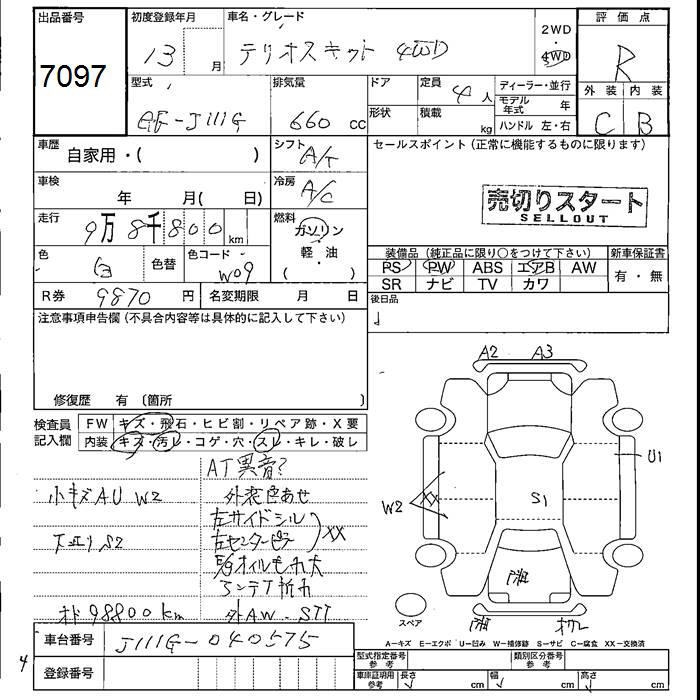 出品番号
7097
初度登録年月
13 月
車名・グレード
テリオスキッド 4WD
2WD
4WD
評価点
R
外装 内装
C B
型式
GF-J111G
排気量
660 cc
ドア
形状
定員
4人
積載
kg
ディーラー・並行
モデル年式 年
ハンドル 左・右
車歴
自家用・( )
シフト
A/T
セールスポイント (正常に機能するものに限ります)
売切りスタート
SELLOUT
車検
年 月( 日)
冷房
A/C
走行
9万8千800 km
燃料
ガソリン
軽・油
( )
色
白
色替
色コード
W09
装備品 (純正品に限り○をつけて下さい)
新車保証書
PS PW ABS エアB AW
SR ナビ TV カワ
有・無
R券 9870 円
名変期限 月 日
後日品
注意事項申告欄 (不具合内容等は具体的に記入して下さい)
修復歴 有 (箇所 )
検査員
記入欄
FW キズ・飛石・ヒビ割・リペア跡・X要
内装 キズ・汚レ・コゲ・穴・スレ・キレ・破レ
AT異音?
小キズAU W2
外装色あせ
左サイドシル
左センターピラー
XX
下廻りS2
E/Gオイルもれ大
アンテナ折れ
オド98800km
外AW・STT
A2 A3
U1
W2
XX
S1
スペア
A-キズ E-エクボ U-凹み W-補修跡 S-サビ C-腐食 XX-交換済
車台番号
J111G-040575
登録番号
型式指定番号
参考
類別区分番号
参考
車庫証明用
参考
長さ cm
幅 cm
高さ cm
4